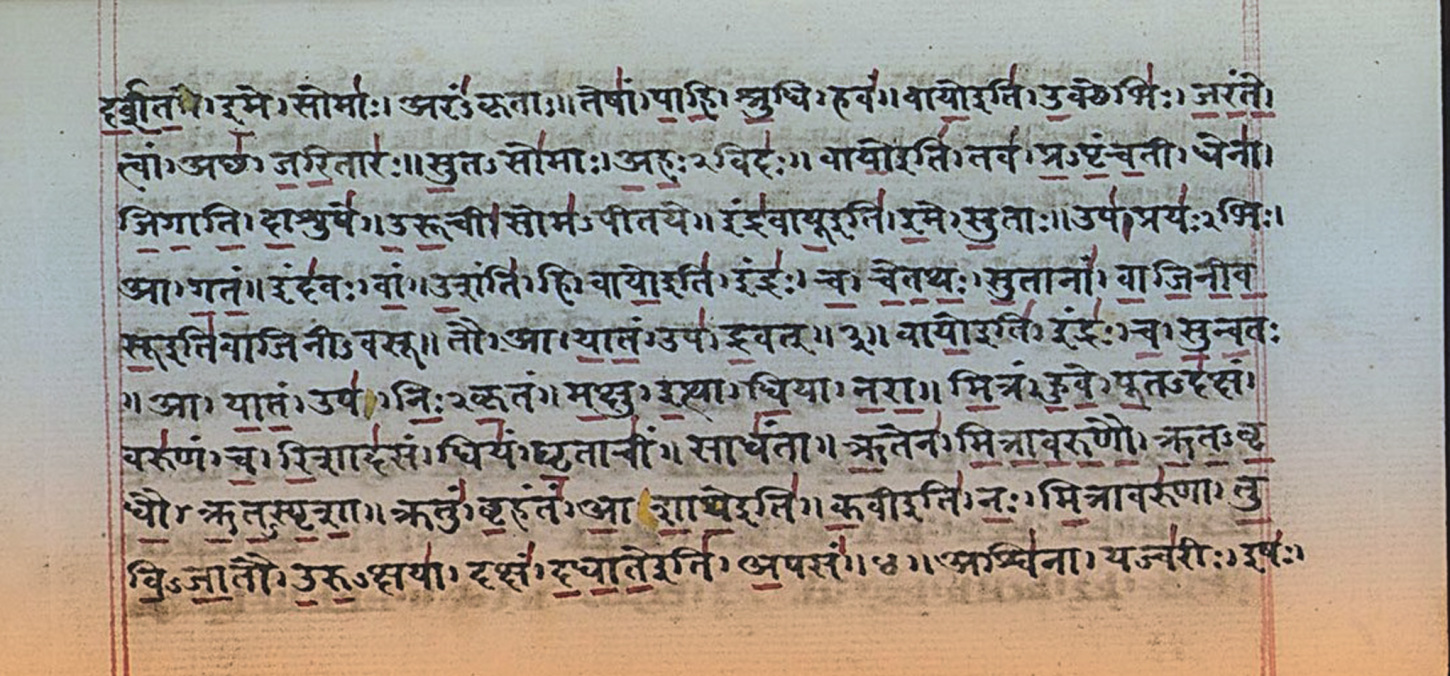 दर्शत । इमे । सोमाः । अरंऽकृताः ॥ तेषां । पाहि । श्रुधि । हवं ॥ वायो इति । उक्थेभिः । जरंते ।
त्वां । अच्छ । जरितारः ॥ सुतऽसोमाः । अहःऽविदः ॥ वायो इति । तव । प्रऽपृंचती । धेना ।
जिगाति । दाशुषे ॥ उरूची । सोमऽपीतये ॥ इंद्रवायू इति । इमे । सुताः ॥ उप । प्रयःऽभिः ।
आ । गतं ॥ इंदवः । वां । उशंति । हि । वायो इति । इंद्रः । च । चेतथः । सुतानां । वाजिनीव
सू इति वाजिनीऽवसू ॥ तौ । आ । यातं । उप । द्रवत् ॥ ३ ॥ वायो इति । इंद्रः । च । सुन्वतः
। आ । यातं । उप । निःऽकृतं ॥ मक्षु । इत्था । धिया । नरा ॥ मित्रं । हुवे । पूतऽदक्षं ।
वरुणं । च । रिशादसं । धियं । घृताचीं । साधंता ॥ ऋतेन । मित्रावरुणौ । ऋतऽवृ
धौ । ऋतऽस्पृशा ॥ क्रतुं । बृहंतं । आशाथे इति ॥ कवी इति । नः । मित्रावरुणा । तु
विऽजातौ । उरुऽक्षया । दक्षं । दधाते इति । अपसं ॥ ४ ॥ अश्विना । यज्वरीः । इषः ।